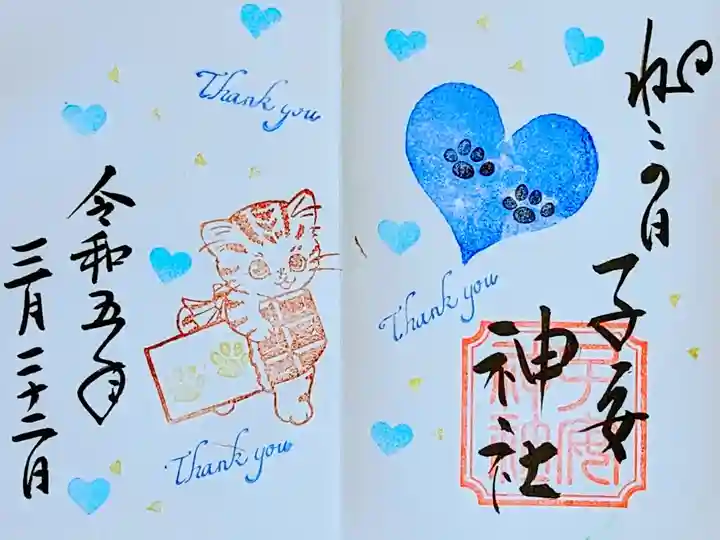 ねこの日
子安
神社
子安
神社
Thank you
Thank you
Thank you
令和五年
三月二十二日